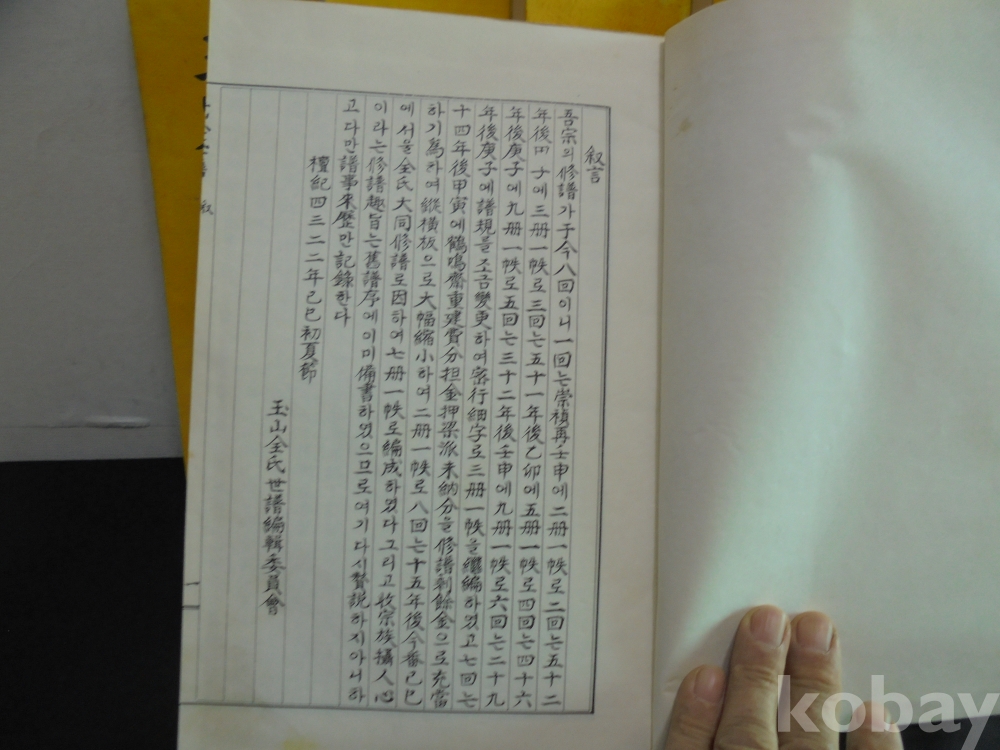 叙言
吾宗의修譜가于今八回이니一回는崇禎再壬申에二册一帙로二回는五十二
年後甲子에三册一帙로三回는五十一年後乙卯에五册一帙로四回는四十六
年後庚子에九册一帙로五回는三十二年後壬申에九册一帙로六回는二十九
年後庚子에譜規를조금變更하여密行細字로三册一帙을繼編하였고七回는
十四年後甲寅에鶴鳴齋重建費分担金押梁派未納分을修譜剩餘金으로充當
하기爲하여縱橫板으로大幅縮小하여二册一帙로八回는十五年後今番己巳
에서울全氏大同修譜로因하여七册一帙로編成하였다그리고收宗族攝人心
이라는修譜趣旨는舊譜序에이미備書하였으므로여기다시贅説하지아니하
고다만譜事來歷만記錄한다
檀紀四三二二年己巳初夏節
玉山全氏世譜編輯委員會
一
kobay